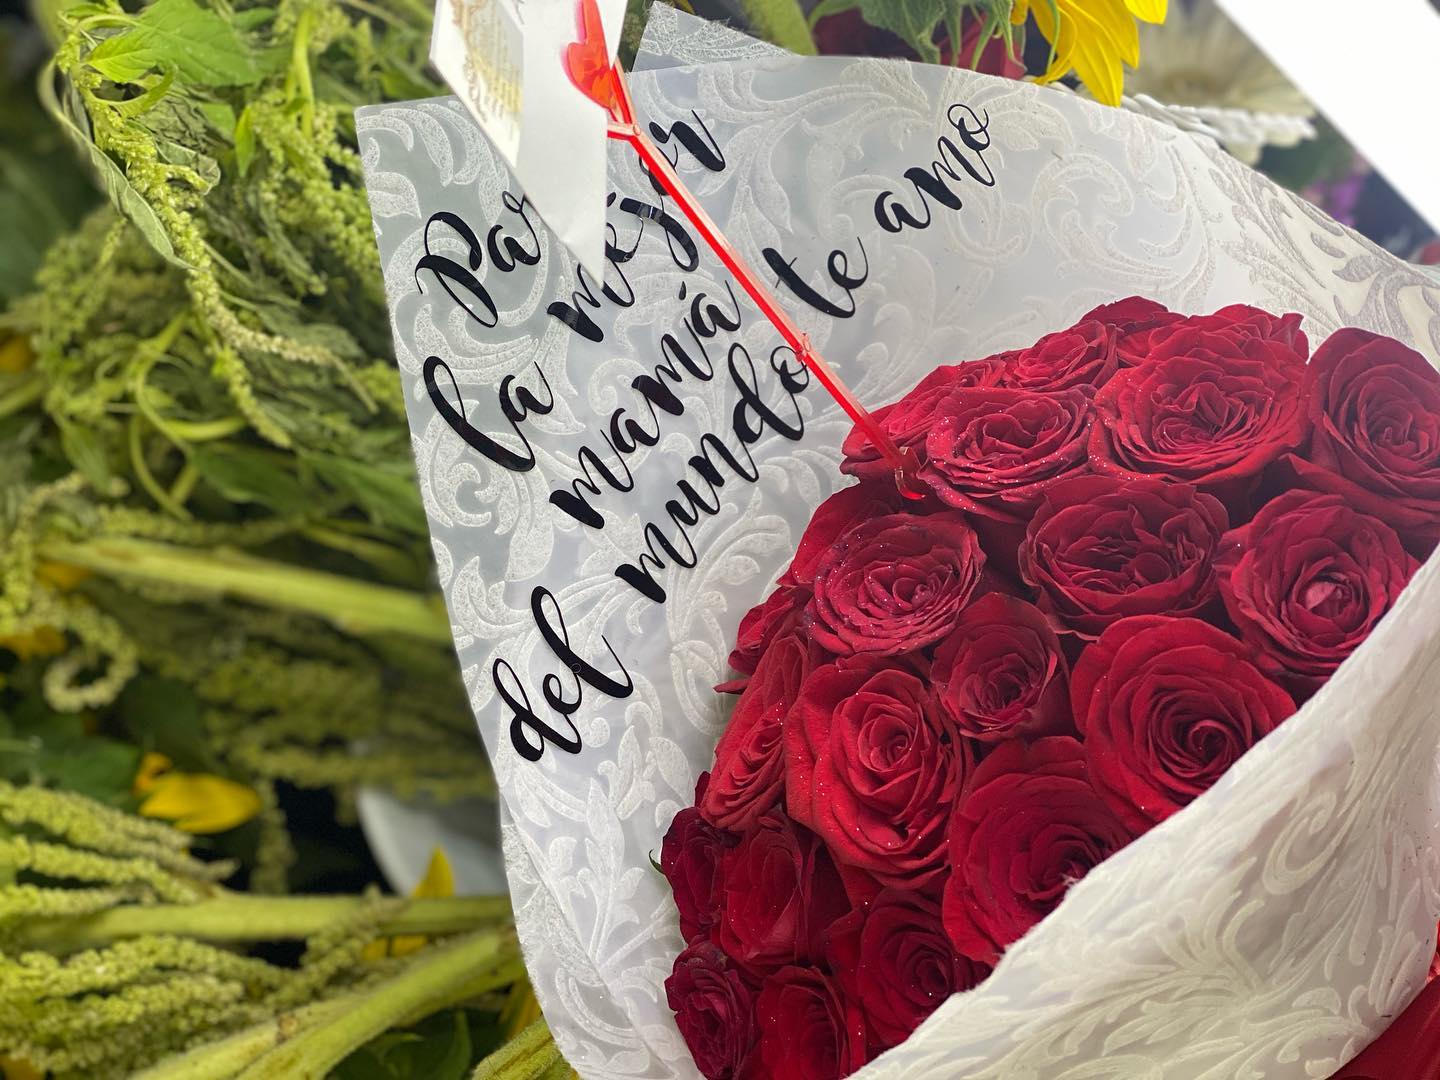 Par
la mejor
mamá
del mundo te amo